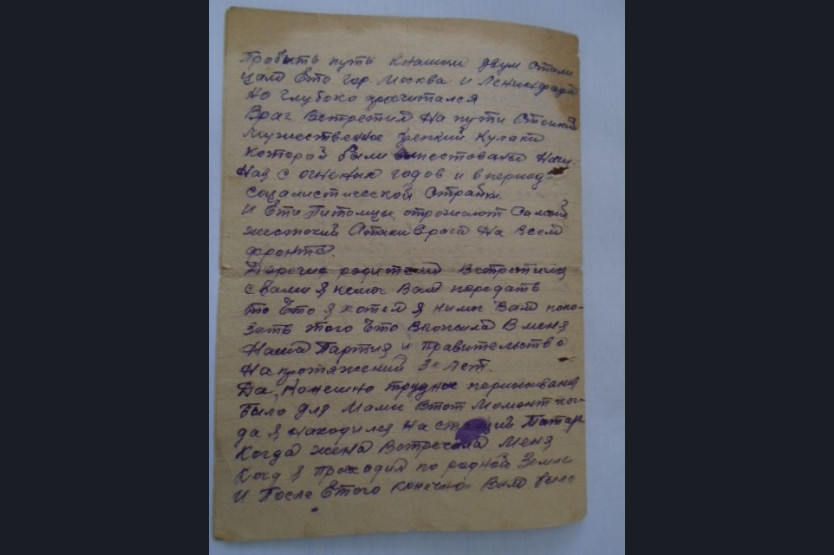 Пробыть путь кнашим двум столи
цам Ето гор. Москва и Ленинград
но глубоко просчитался
Враг встретил на пути стойкий
мужественные крепкий кулаки
которой были воспитоване начи
ная с огненых годов и в период
социалистической стройки
И Ети питомцы отрожают самый
жестокий Атаки врага на всем
фронте.
Дорогие родители Встретившись
с вами я немог Вам передать
то Что я хотел я немог Вам пока-
зать этого Что Вложила В меня
Наша Партия и правительство
На протяжений 30 лет.
Да, конешно трудное пориживание
было для Мамы Втот момонт ког-
да я находился на станций Татар
Когда жена Встречала Меня
Когд я проходил по родной Земле
И После Етого конечно Вам было